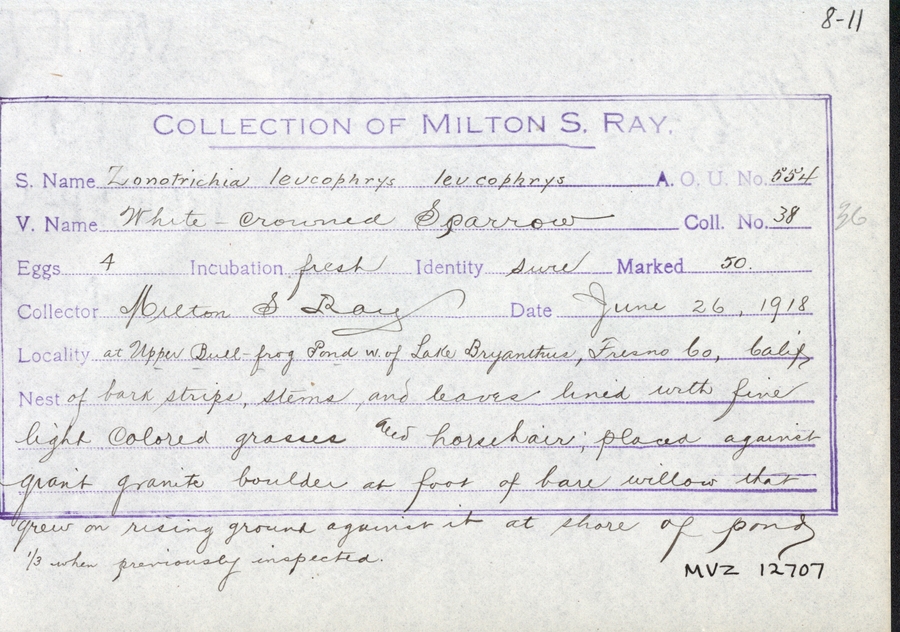 8-11
COLLECTION OF MILTON S. RAY.
S. Name Zonotrichia leucophrys leucophrys A. O. U. No. 554
V. Name White-crowned Sparrow Coll. No. 38 36
Eggs 4 Incubation fresh Identity sure Marked 50.
Collector Milton S Ray Date June 26, 1918
Locality at Upper Bull-frog Pond w. of Lake Bryanthus, Fresno Co, Calif,
Nest of bark strips, stems, and leaves lined with fine
light colored grasses and horsehair; placed against
giant granite boulder at foot of bare willow that
grew on rising ground against it at shore of pond
1/3 when previously inspected.
MVZ 12707